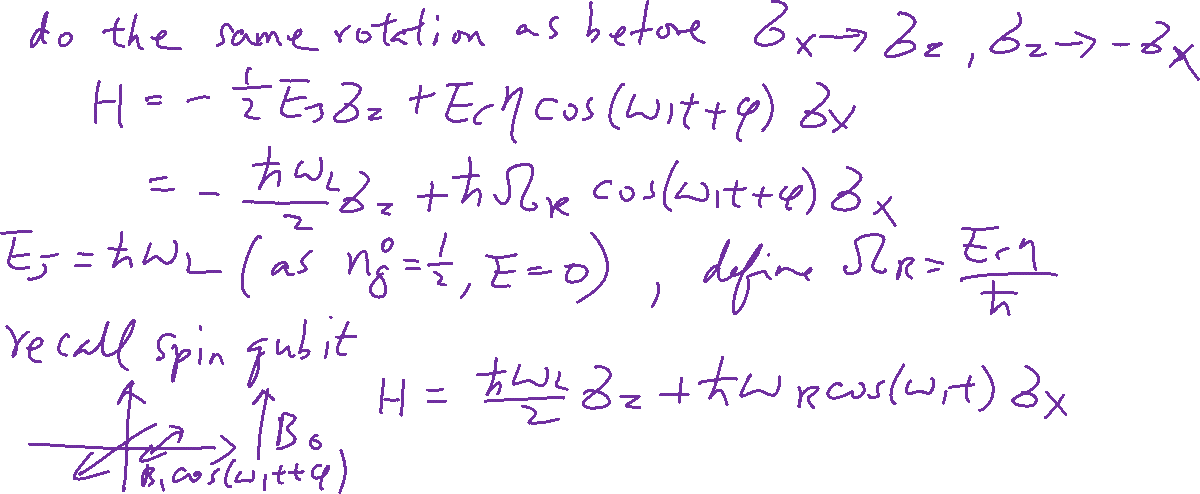 do the same rotation as before σx→σz, σz→-σx
H = -½ EJσz + Ecη cos(ω1t+φ) σx
= - ħωL/2 σz + ħΩR cos(ω1t+φ) σx
EJ = ħωL (as ng⁰=½, E=0), define ΩR = Ecη/ħ
recall spin qubit
H = ħωL/2 σz + ħωR cos(ω1t) σx
B0
B1 cos(ω1t+φ)